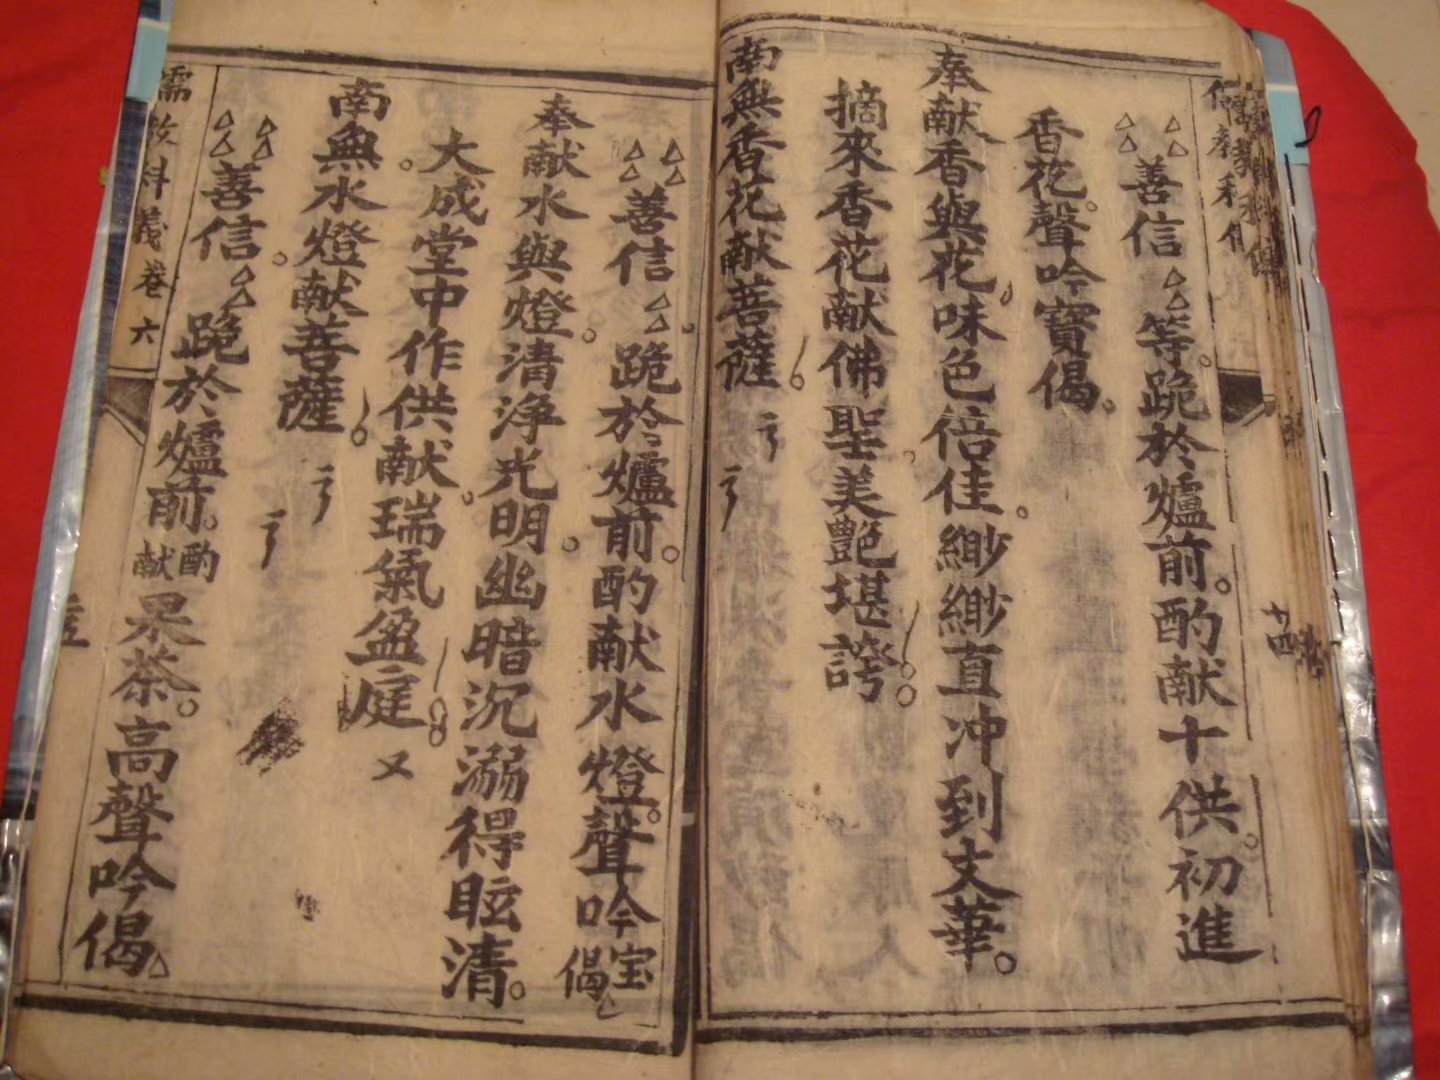 善信等跪於爐前。酌献十供。初進
香花。聲吟寶偈。
奉献香與花味色倍佳。緲緲直冲到文華。
摘來香花献佛聖美艷堪誇。
南無香花献菩薩
善信跪於爐前。酌献水燈。聲吟宝偈
奉献水與燈。清浄光明幽暗沉溺得眩清。
大成堂中作供献。瑞氣盈庭。又
南無水燈献菩薩
善信跪於爐前。酌献果茶。高聲吟偈
科義卷六